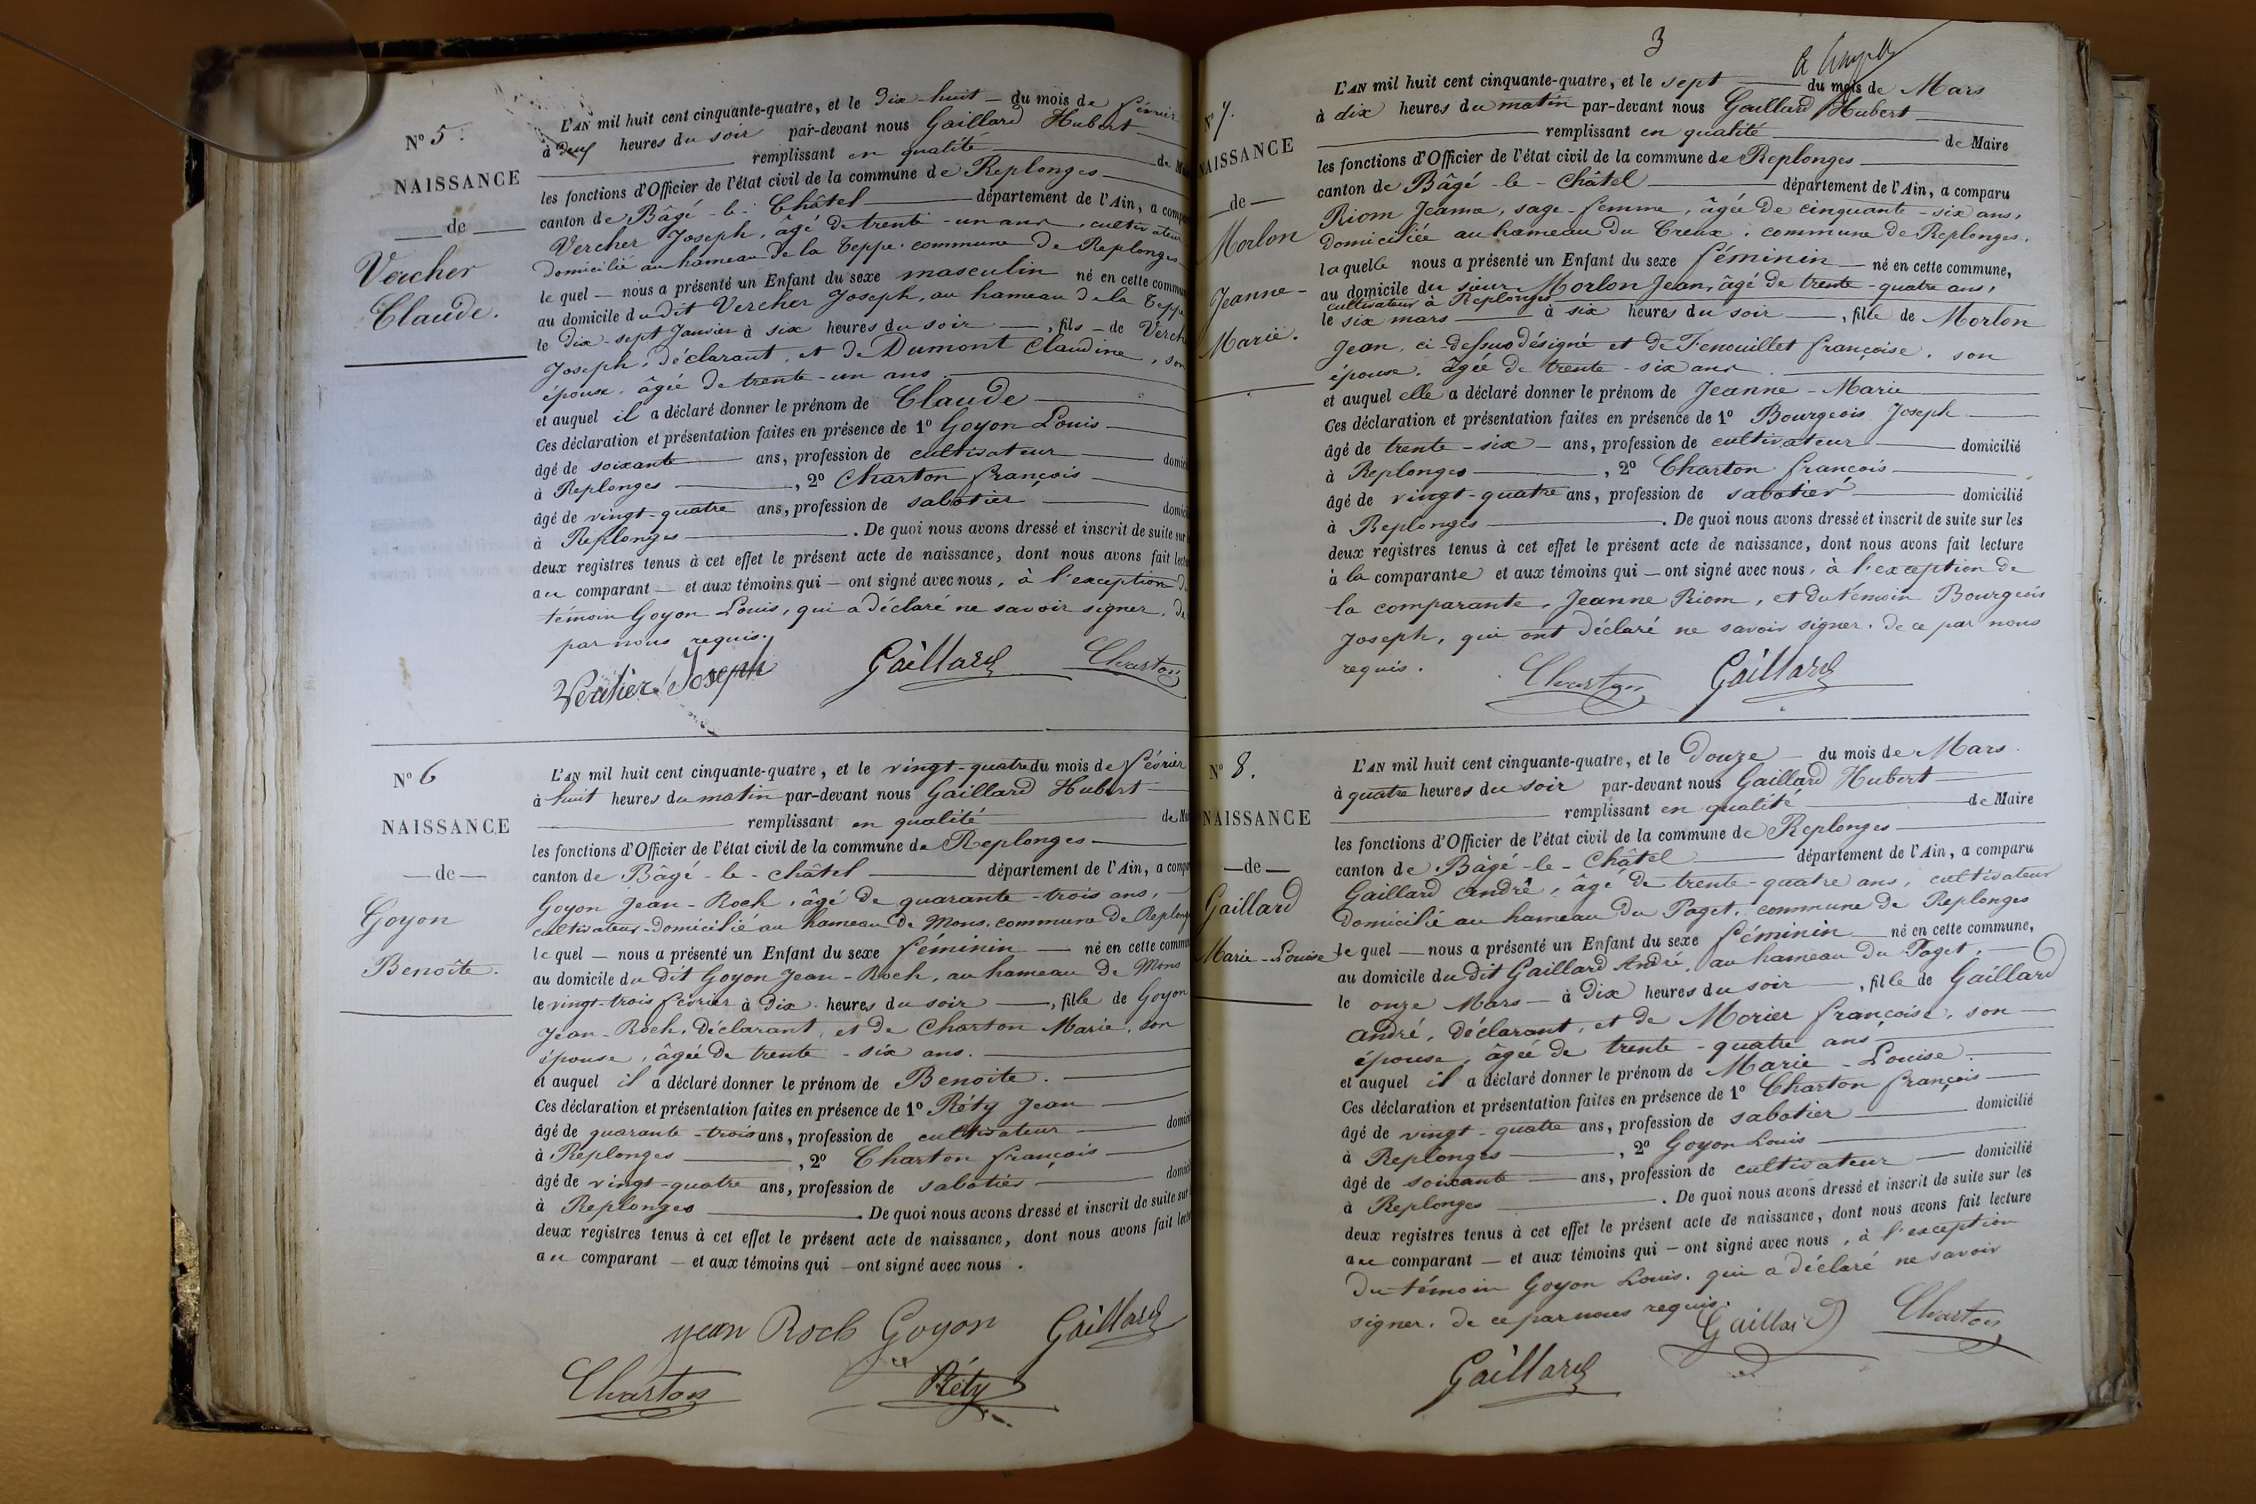 N° 5.
NAISSANCE
de
Vercher
Claude.
L'AN mil huit cent cinquante-quatre, et le Dix-huit du mois de février
à heures du soir par-devant nous Gaillard Hubert
remplissant en qualité de
les fonctions d'Officier de l'état civil de la commune de Replonges
canton de Bâgé-le-Châtel département de l'Ain, a
Vercher Joseph, âgé de trente-un ans, cultivateur
domicilié au hameau de la Teppe, commune de Replonges
lequel nous a présenté un Enfant du sexe masculin né en cette
au domicile du dit Vercher Joseph, au hameau de la Teppe
le dix-sept Janvier à six heures du soir, fils de
Joseph, déclarant, et de Dumont Claudine, son
épouse, âgée de trente-un ans.
et auquel il a déclaré donner le prénom de Claude
Ces déclaration et présentation faites en présence de 1° Goyon Louis
âgé de soixante ans, profession de cultivateur
à Replonges, 2° Charton françois
âgé de vingt-quatre ans, profession de sabotier
à Replonges. De quoi nous avons dressé et inscrit de suite sur
deux registres tenus à cet effet le présent acte de naissance, dont nous avons fait
au comparant et aux témoins qui ont signé avec nous, à l'exception
témoin Goyon Louis, qui a déclaré ne savoir signer, de
par nous requis.
Joseph Gaillard Charton
N° 6
NAISSANCE
de
Goyon
Benoîte.
L'AN mil huit cent cinquante-quatre, et le vingt-quatre du mois de février
à huit heures du matin par-devant nous Gaillard Hubert
remplissant en qualité de
les fonctions d'Officier de l'état civil de la commune de Replonges
canton de Bâgé-le-châtel département de l'Ain, a
Goyon Jean-Roch, âgé de quarante-trois ans,
cultivateur domicilié au hameau de Mons, commune de
lequel nous a présenté un Enfant du sexe féminin né en cette
au domicile du dit Goyon Jean-Roch, au hameau de Mons
le vingt-trois février à dix heures du soir, fille de Goyon
Jean-Roch, déclarant, et de Charton Marie, son
épouse, âgée de trente-six ans.
et auquel il a déclaré donner le prénom de Benoite.
Ces déclaration et présentation faites en présence de 1° Réty Jean
âgé de quarante-trois ans, profession de cultivateur
à Replonges, 2° Charton françois
âgé de vingt-quatre ans, profession de sabotier
à Replonges. De quoi nous avons dressé et inscrit de suite sur
deux registres tenus à cet effet le présent acte de naissance, dont nous avons fait
au comparant et aux témoins qui ont signé avec nous.
jean Roch Goyon Gaillard
Charton Réty
3
N° 7.
NAISSANCE
de
Morlon
Jeanne-
Marie.
L'AN mil huit cent cinquante-quatre, et le sept du mois de Mars
à dix heures du matin par-devant nous Gaillard Hubert
remplissant en qualité de Maire
les fonctions d'Officier de l'état civil de la commune de Replonges
canton de Bâgé-le-Châtel département de l'Ain, a comparu
Riom Jeanne, sage-femme, âgée de cinquante-six ans,
domiciliée au hameau du Creux, commune de Replonges.
laquelle nous a présenté un Enfant du sexe féminin né en cette commune,
au domicile du sieur Morlon Jean, âgé de trente-quatre ans,
cultivateur à Replonges
le six mars à six heures du soir, fille de Morlon
Jean, ci-dessus désigné et de Fenouillet françoise, son
épouse, âgée de trente-six ans
et auquel elle a déclaré donner le prénom de Jeanne-Marie
Ces déclaration et présentation faites en présence de 1° Bourgeois Joseph
âgé de trente-six ans, profession de cultivateur domicilié
à Replonges, 2° Charton françois
âgé de vingt-quatre ans, profession de sabotier domicilié
à Replonges. De quoi nous avons dressé et inscrit de suite sur les
deux registres tenus à cet effet le présent acte de naissance, dont nous avons fait lecture
à la comparante et aux témoins qui ont signé avec nous, à l'exception de
la comparante, Jeanne Riom, et du témoin Bourgeois
Joseph, qui ont déclaré ne savoir signer, de ce par nous
requis.
Charton Gaillard
N° 8.
NAISSANCE
de
Gaillard
Marie-Louise
L'AN mil huit cent cinquante-quatre, et le Douze du mois de Mars
à quatre heures du soir par-devant nous Gaillard Hubert
remplissant en qualité de Maire
les fonctions d'Officier de l'état civil de la commune de Replonges
canton de Bâgé-le-Châtel département de l'Ain, a comparu
Gaillard André, âgé de trente-quatre ans, cultivateur
domicilié au hameau du Paget, commune de Replonges
lequel nous a présenté un Enfant du sexe féminin né en cette commune,
au domicile du dit Gaillard André, au hameau du Paget,
le onze Mars à Dix heures du soir, fille de Gaillard
André, déclarant, et de Morier françoise, son
épouse, âgée de trente-quatre ans
et auquel il a déclaré donner le prénom de Marie-Louise.
Ces déclaration et présentation faites en présence de 1° Charton françois
âgé de vingt-quatre ans, profession de sabotier domicilié
à Replonges, 2° Goyon Louis
âgé de soixante ans, profession de cultivateur domicilié
à Replonges. De quoi nous avons dressé et inscrit de suite sur les
deux registres tenus à cet effet le présent acte de naissance, dont nous avons fait lecture
au comparant et aux témoins qui ont signé avec nous, à l'exception
du témoin Goyon Louis, qui a déclaré ne savoir
signer, de ce par nous requis.
Gaillard Charton
Gaillard